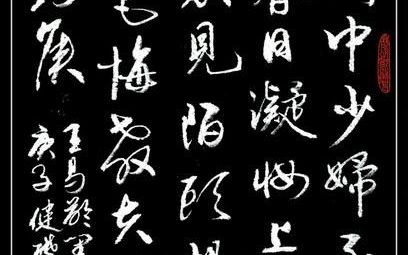 中少婦不
春日凝妝上
見陌頭
色悔教夫
侯
王昌齡閨
庚子健